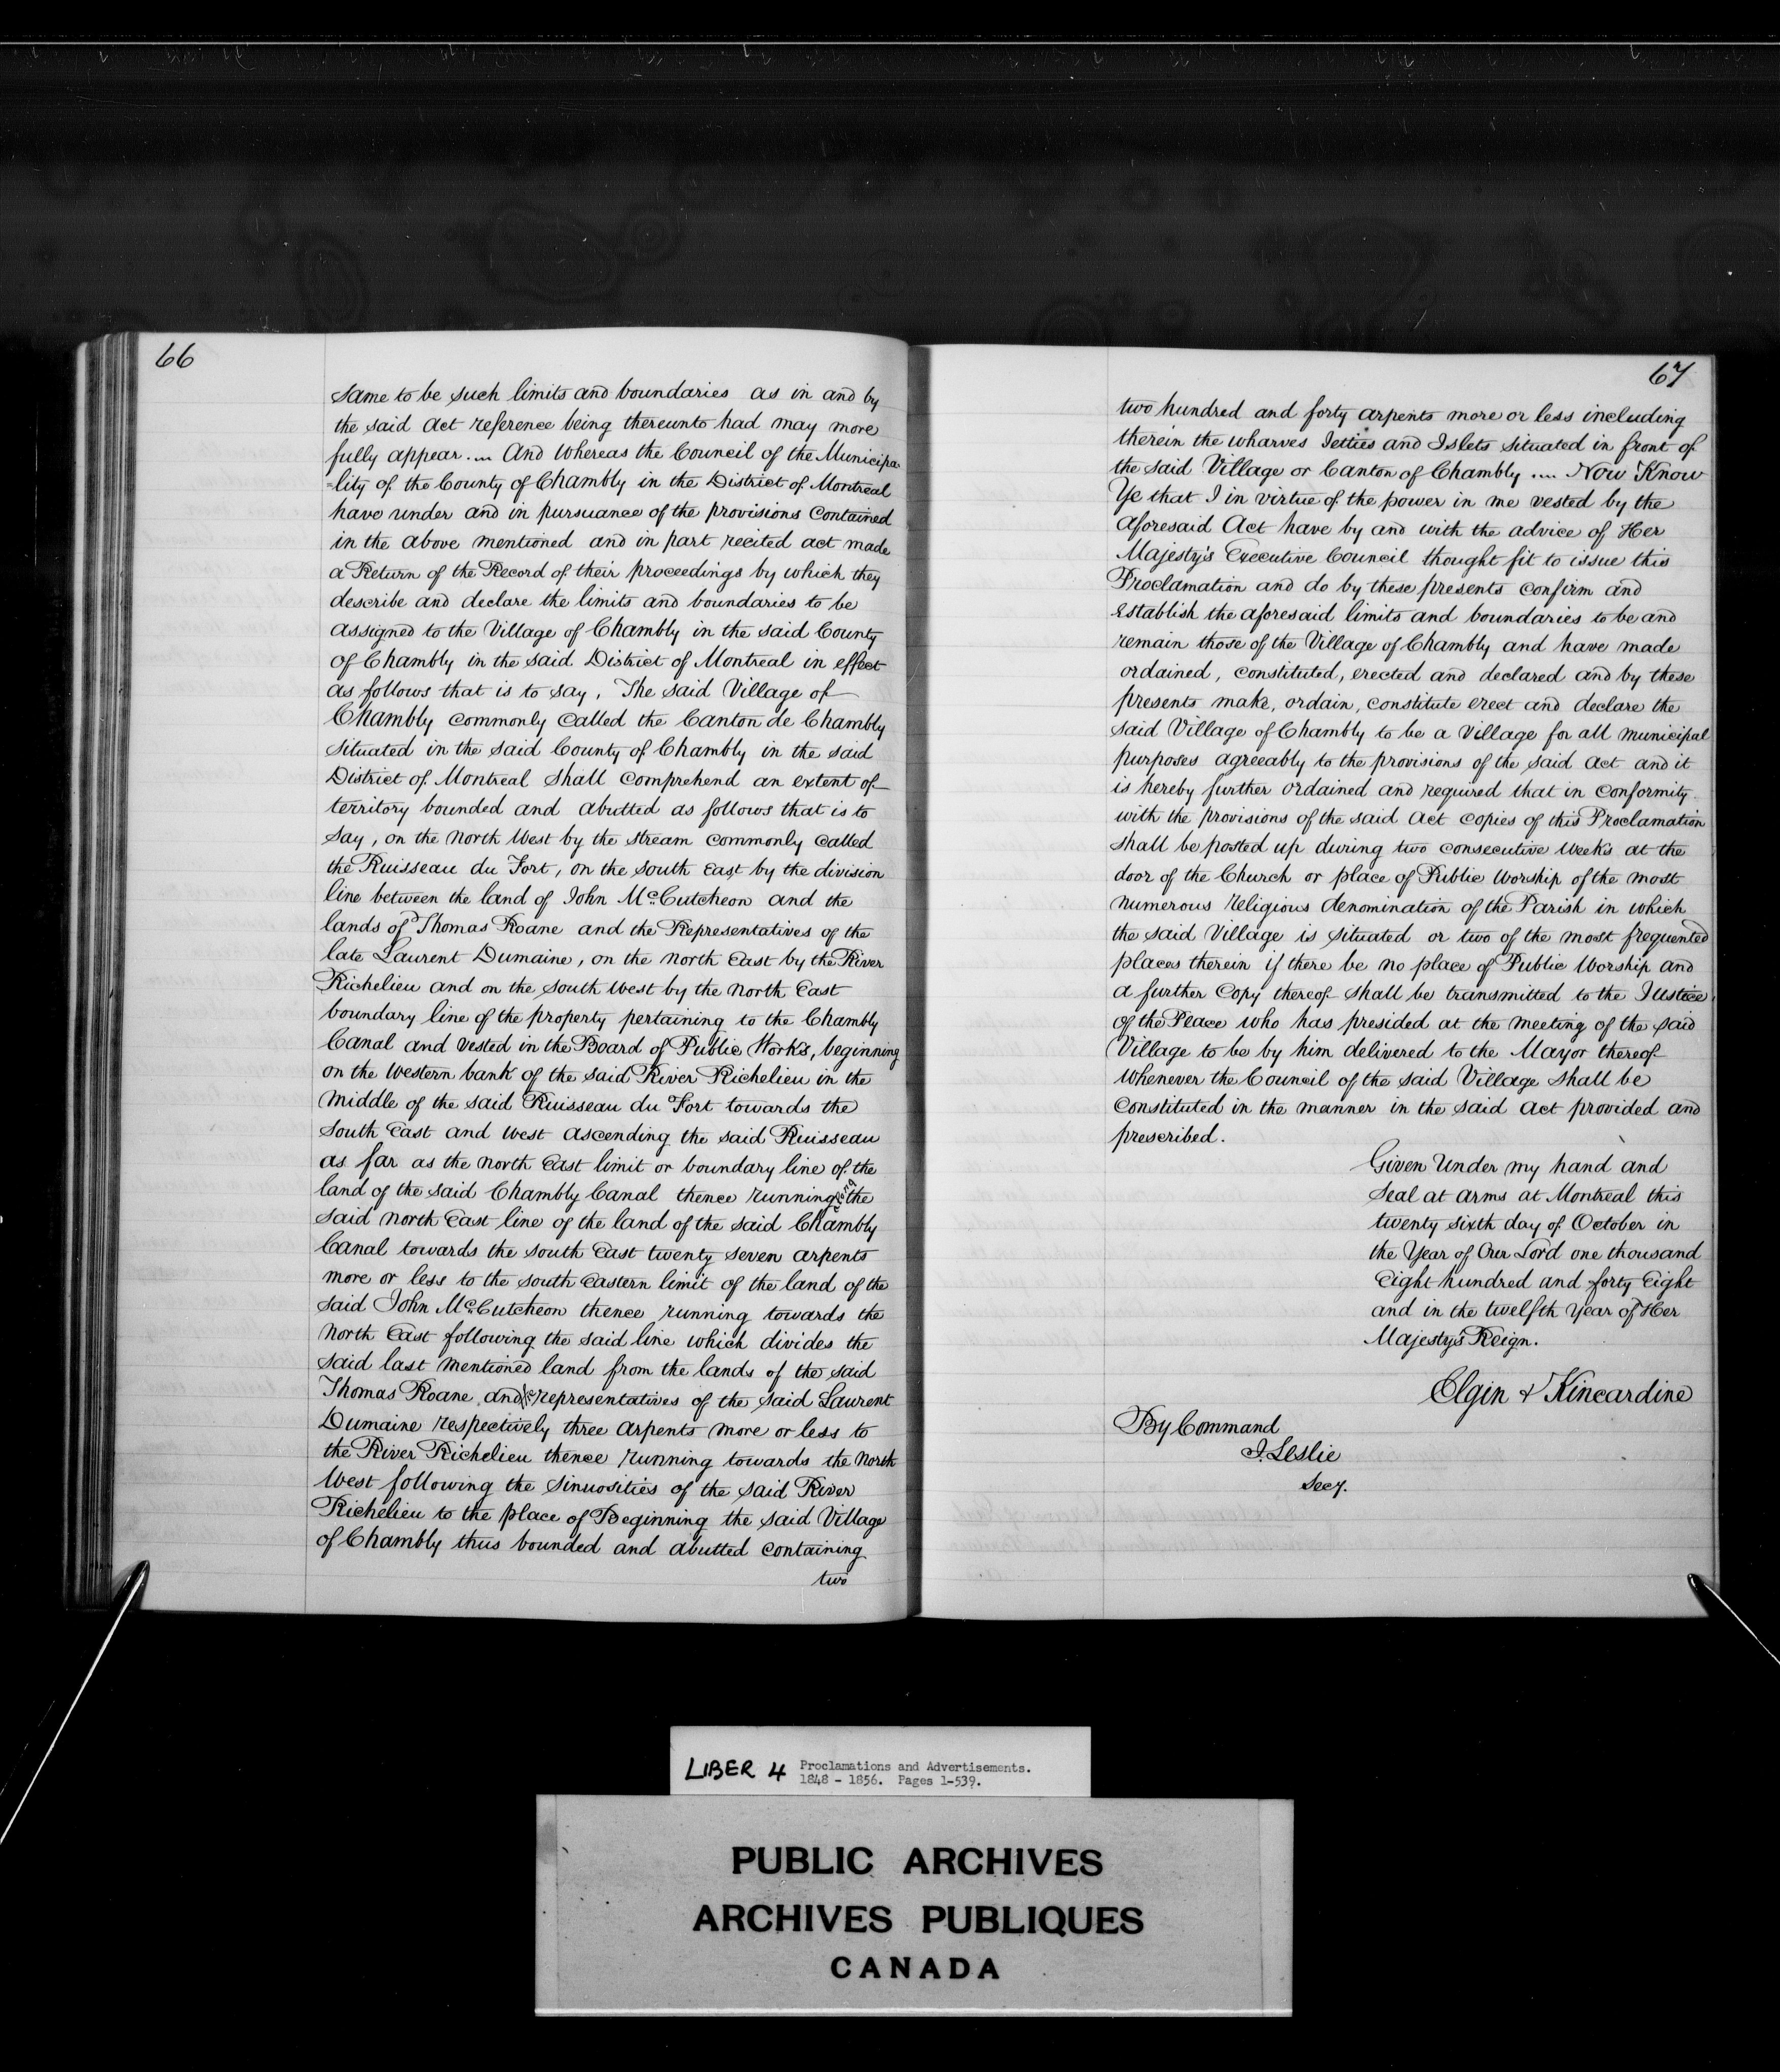 66
same to be such limits and boundaries as in and by
the said act reference being thereunto had may more
fully appear .... And whereas the Council of the Municipa
=lity of the County of Chambly in the District of Montreal
have under and in pursuance of the provisions contained
in the above mentioned and in part recited act made
a Return of the Record of their proceedings by which they
describe and declare the limits and boundaries to be
assigned to the Village of Chambly in the said County
of Chambly in the said District of Montreal in effect
as follows that is to say, The said Village of
Chambly commonly called the Canton de Chambly
situated in the said County of Chambly in the said
District of Montreal shall comprehend an extent of
territory bounded and abutted as follows that is to
say, on the North West by the stream commonly called
the Ruisseau du Fort, on the south East by the division
line between the land of John McCutcheon and the
lands of Thomas Roane and the Representatives of the
late Laurent Dumaine, on the north East by the River
Richelieu and on the South West by the North East
boundary line of the property pertaining to the Chambly
Canal and vested in the Board of Public Works, beginning
on the Western bank of the said River Richelieu in the
middle of the said Ruisseau du Fort towards the
South East and West ascending the said Ruisseau
as far as the north East limit or boundary line of the
land of the said Chambly Canal thence running along the
said north East line of the land of the said Chambly
Canal towards the south East twenty seven arpents
more or less to the south Eastern limit of the land of the
said John McCutcheon thence running towards the
north East following the said line which divides the
said last mentioned land from the lands of the said
Thomas Roane and the representatives of the said Laurent
Dumaine respectively three arpents more or less to
the River Richelieu thence running towards the North
West following the sinuosities of the said River
Richelieu to the place of Beginning the said Village
of Chambly thus bounded and abutted containing
two
67
two hundred and forty arpents more or less including
therein the wharves Jetties and Islets situated in front of
the said Village or Canton of Chambly .... Now Know
Ye that I in virtue of the power in me vested by the
aforesaid Act have by and with the advice of Her
Majesty's Executive Council thought fit to issue this
Proclamation and do by these presents confirm and
Establish the aforesaid limits and boundaries to be and
remain those of the Village of Chambly and have made
ordained, constituted, erected and declared and by these
presents make, ordain, constitute erect and declare the
said Village of Chambly to be a Village for all municipal
purposes agreeably to the provisions of the said Act and it
is hereby further ordained and required that in conformity
with the provisions of the said Act copies of this Proclamation
shall be posted up during two consecutive Weeks at the
door of the Church or place of Public Worship of the most
numerous religious denomination of the Parish in which
the said Village is situated or two of the most frequented
places therein if there be no place of Public Worship and
a further Copy thereof shall be transmitted to the Justice
of the Peace who has presided at the meeting of the said
Village to be by him delivered to the Mayor thereof
whenever the Council of the said Village shall be
constituted in the manner in the said Act provided and
prescribed.
Given Under my hand and
Seal at arms at Montreal this
twenty sixth day of October in
the Year of Our Lord one thousand
Eight hundred and forty Eight
and in the twelfth Year of Her
Majesty's Reign.
Elgin & Kincardine
By Command
J. Leslie
Secy.
LIBER 4 Proclamations and Advertisements.
1848 - 1856. Pages 1-539.
PUBLIC ARCHIVES
ARCHIVES PUBLIQUES
CANADA